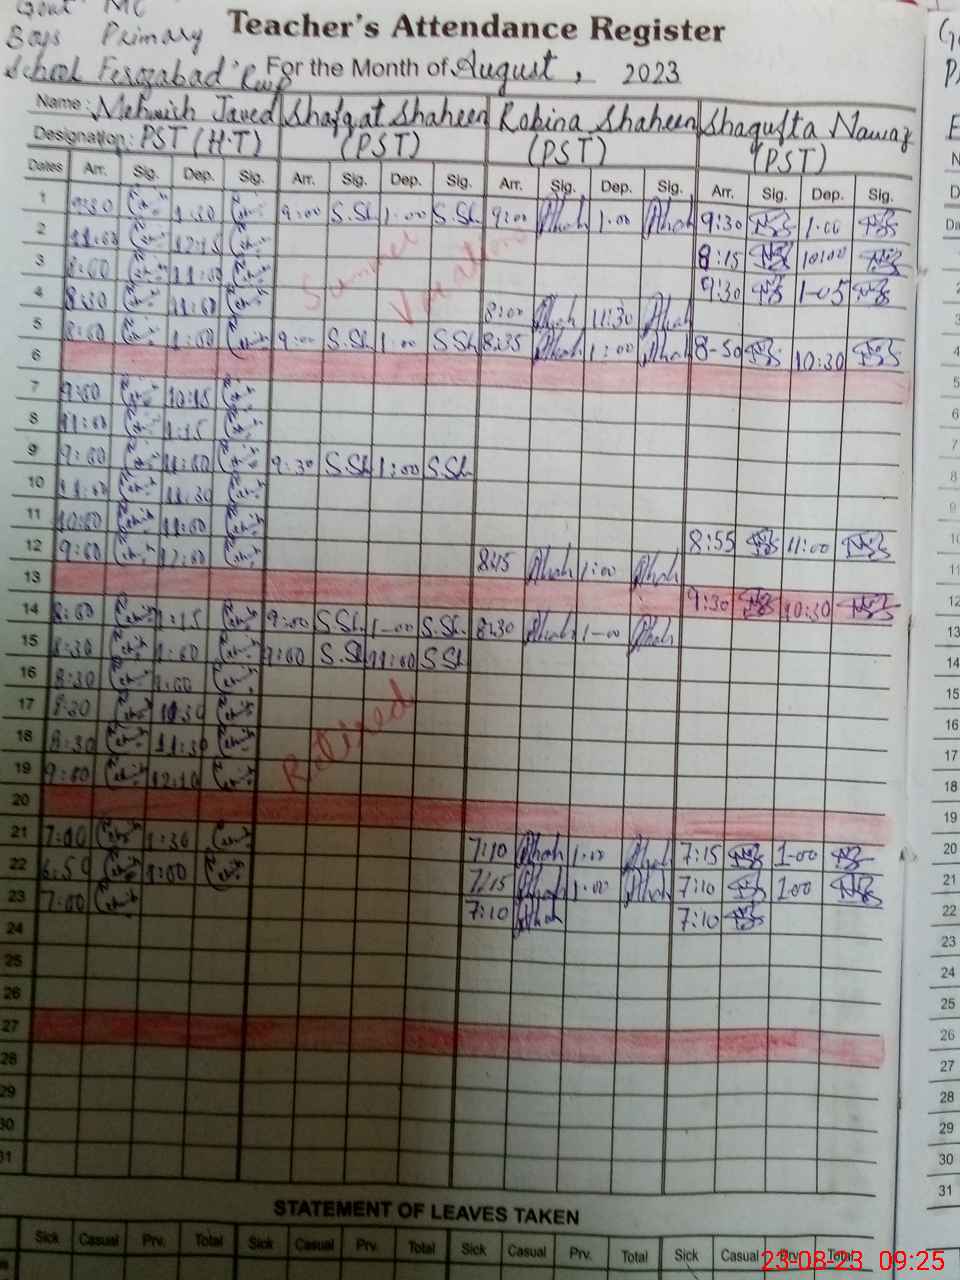 Govt MC
Boys Primary
School Ferozabad Rwp
Teacher's Attendance Register
For the Month of August, 2023
Name: Mehwish Javed Shafqat Shaheen Robina Shaheen Shagufta Nawaz
Designation: PST (H.T) (PST) (PST) (PST)
Dates Arr. Sig. Dep. Sig. Arr. Sig. Dep. Sig. Arr. Sig. Dep. Sig. Arr. Sig. Dep. Sig.
1 9:30 1:30 9:00 S.Sh 1:00 S.Sh 9:00 1:00 9:30 1:00
2 11:00 12:15 8:15 10:00
3 8:00 11:00 9:30 1-05
Summer Vacations
4 8:30 11:00 8:00 11:30
5 8:00 1:00 9:00 S.Sh 1:00 S.Sh 8:35 1:00 8-50 10:30
6
7 9:00 10:15
8 11:00 1:15
9 9:00 11:00 9:30 S.Sh 1:00 S.Sh
10 11:00 11:30
11 10:00 11:00 8:55 11:00
12 9:00 12:00 8:45 1:00
13 9:30 10:30
14 8:00 1:15 9:00 S.Sh 1-00 S.Sh. 8:30 1-00
15 8:30 1:00 9:00 S.Sh 11:00 S.Sh
16 8:30 1:00
17 8:30 10:30
Retired
18 8:30 11:30
19 9:00 12:10
20
21 7:00 1:30 7:10 1:00 7:15 1-00
22 6:59 1:00 7:15 1:00 7:10 1:00
23 7:00 7:10 7:10
24
25
26
27
28
29
30
31
STATEMENT OF LEAVES TAKEN
Sick Casual Prv. Total Sick Casual Prv. Total Sick Casual Prv. Total Sick Casual Prv. Total
23-08-23 09:25